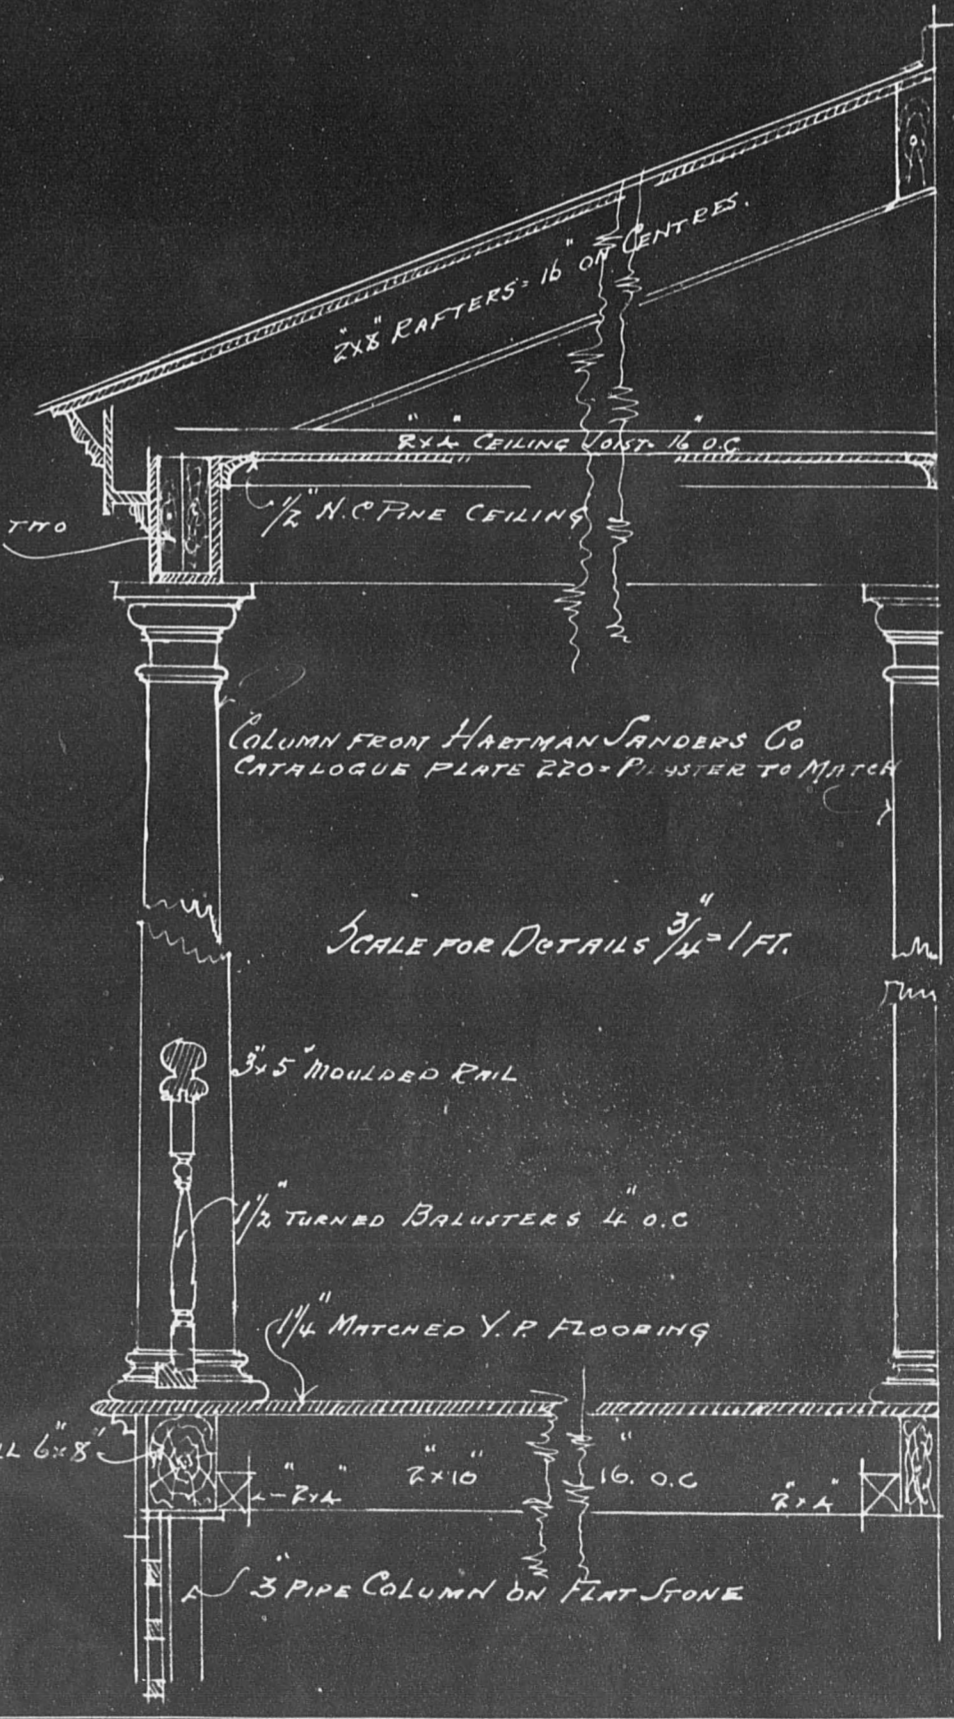 2"x8" RAFTERS = 16" ON CENTRES.
2"x4" CEILING JOIST- 16" O.C.
1/2" N.C. PINE CEILING
TWO
COLUMN FROM HARTMAN SANDERS CO
CATALOGUE PLATE 220 = PILASTER TO MATCH
SCALE FOR DETAILS 3/4" = 1 FT.
3"x5" MOULDED RAIL
1 1/2" TURNED BALUSTERS 4" O.C
1 1/4" MATCHED Y.P. FLOORING
LL 6"x8"
2"x4"
2"x10" 16" O.C
2"x4"
3" PIPE COLUMN ON FLAT STONE